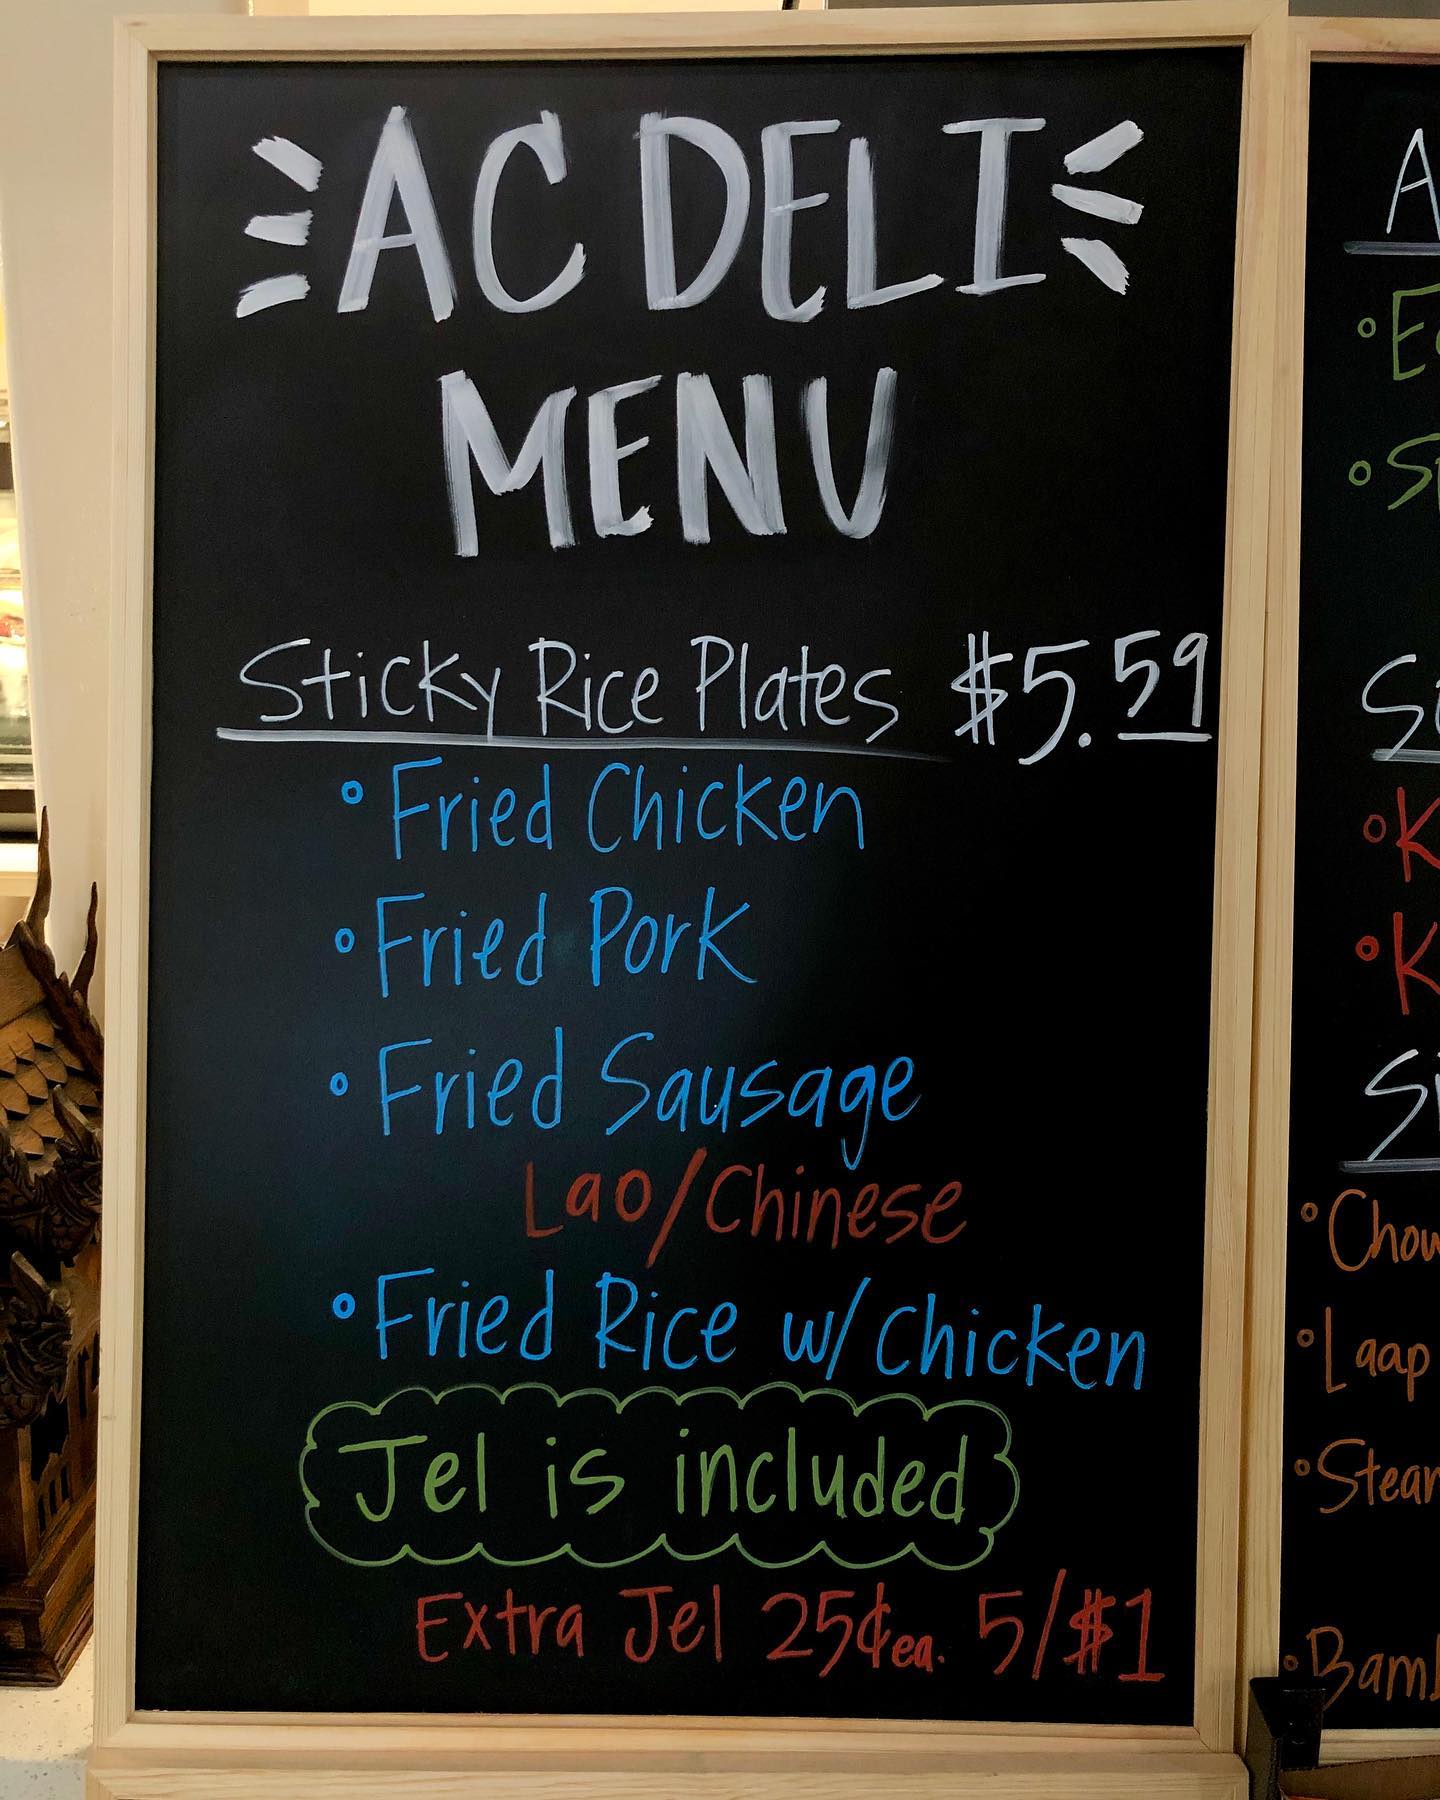 AC DELI
MENU
Sticky Rice Plates $5.59
° Fried Chicken
° Fried Pork
° Fried Sausage
Lao/Chinese
° Fried Rice w/ Chicken
Jel is included
Extra Jel 25¢ ea. 5/$1
° Laap